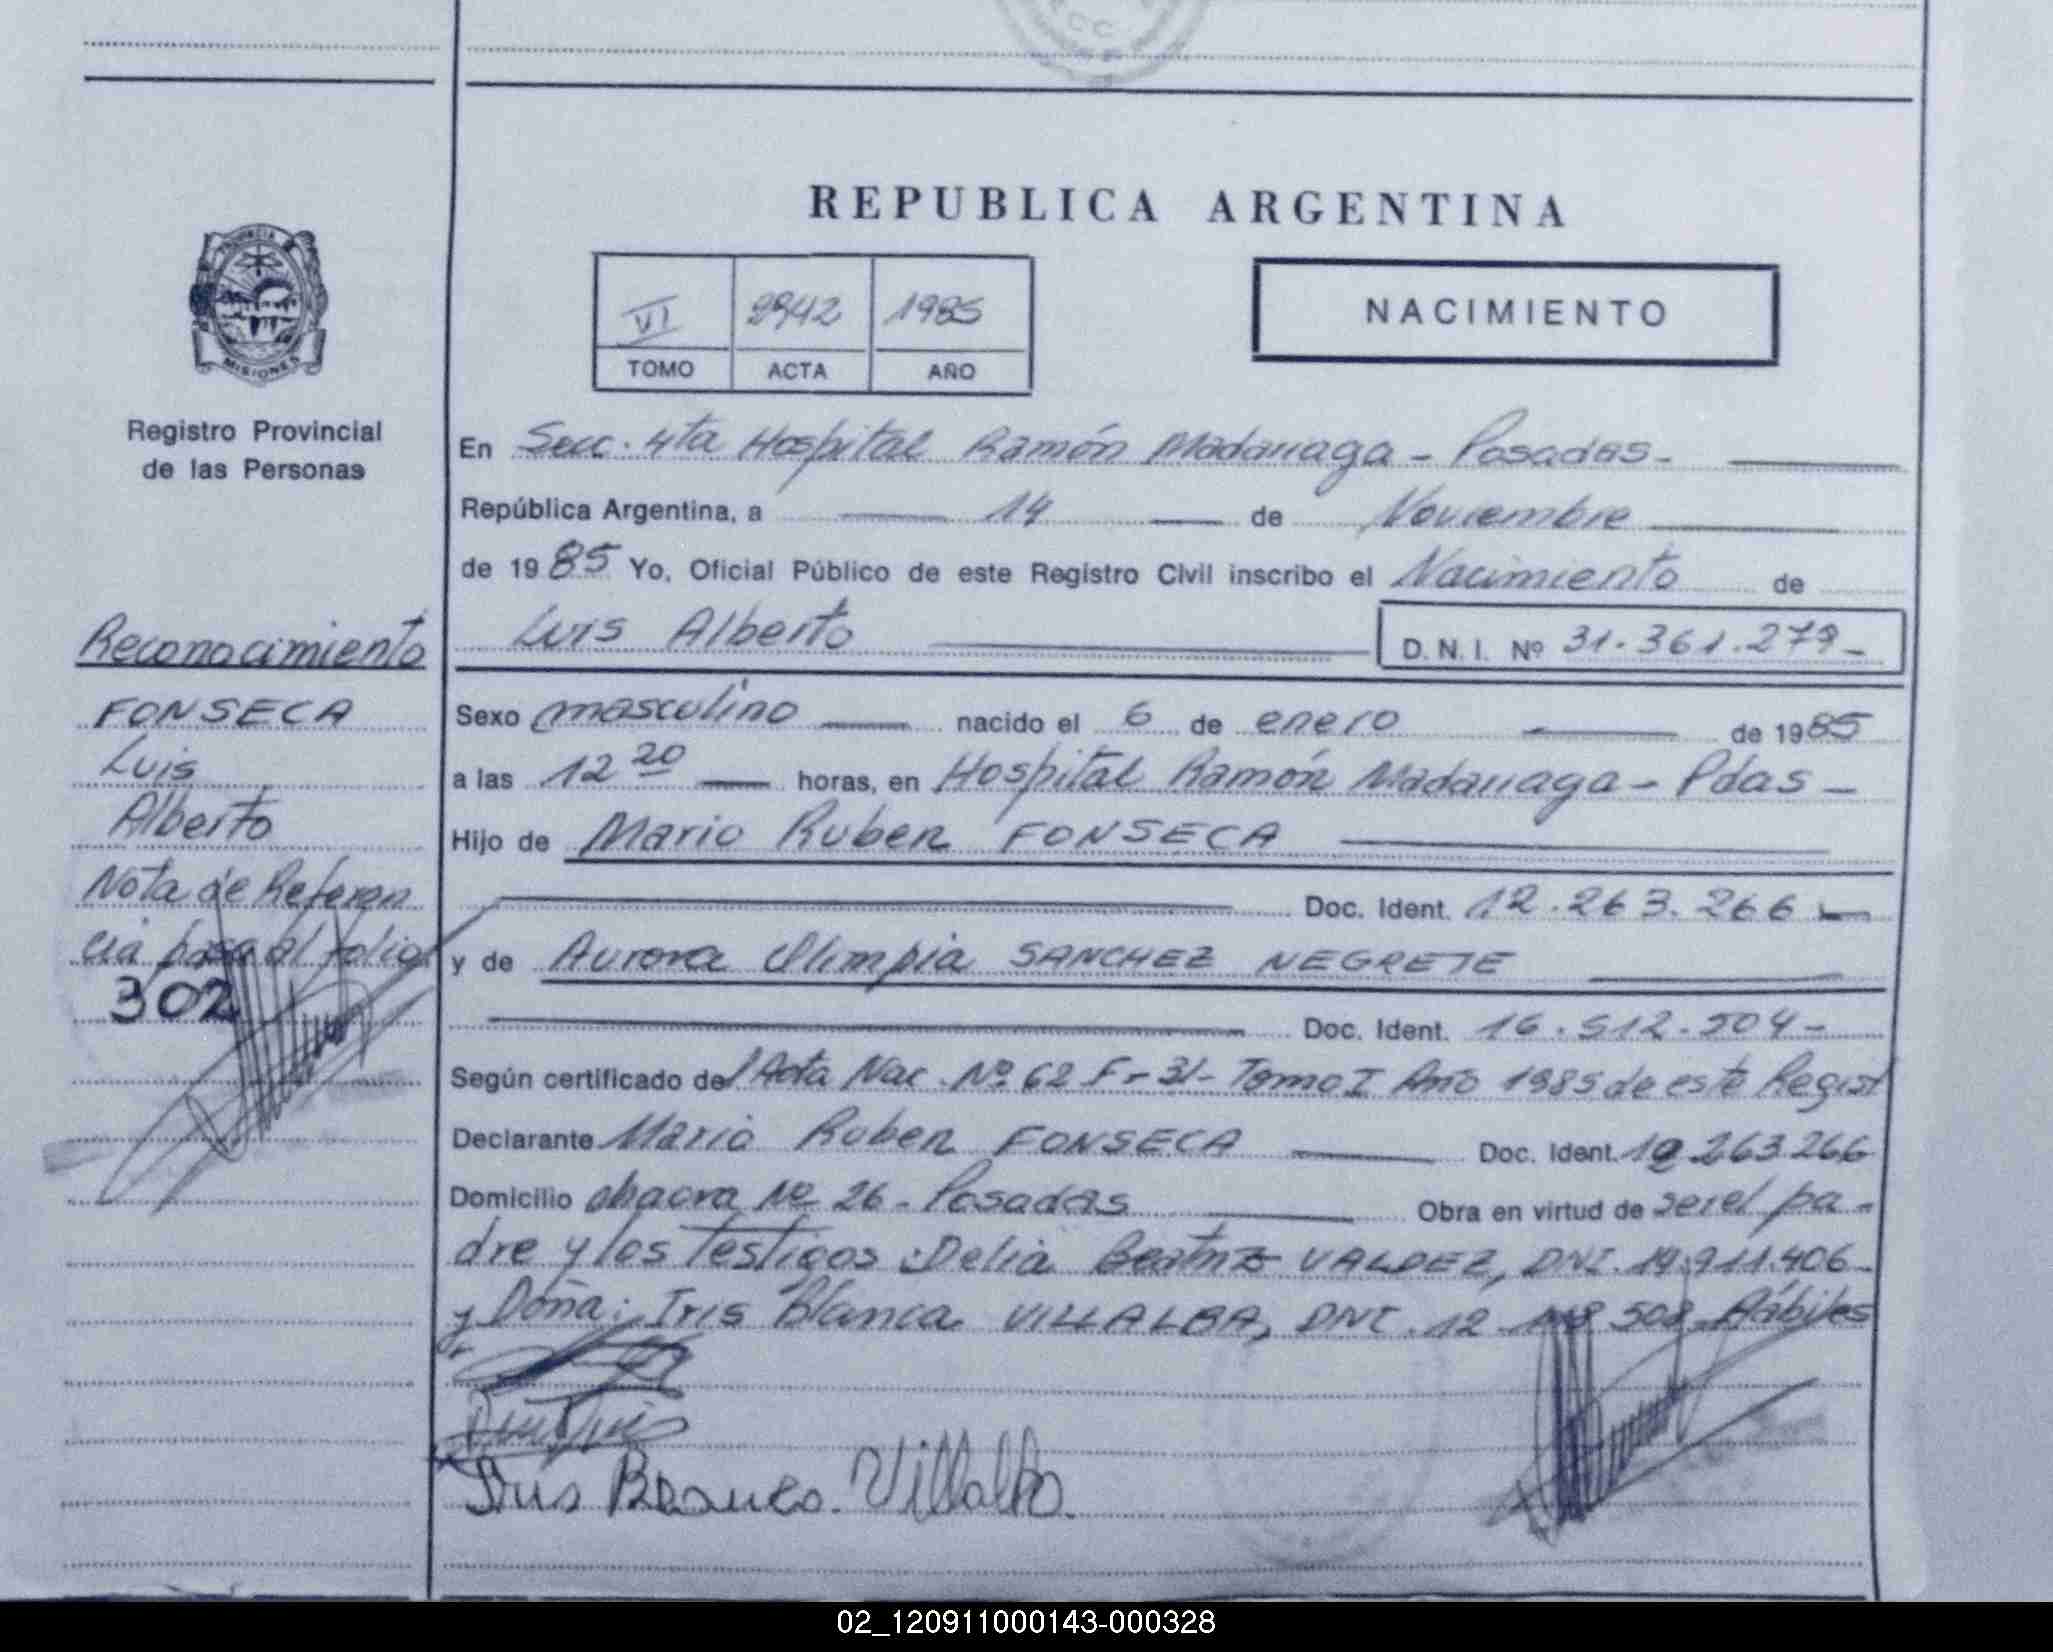 REPUBLICA ARGENTINA
PROVINCIA
MISIONES
Registro Provincial
de las Personas
VI 2942 1985
TOMO ACTA AÑO
NACIMIENTO
En Secc. 4ta Hospital Ramón Madariaga - Posadas -
República Argentina, a 14 de Noviembre
de 1985 Yo, Oficial Público de este Registro Civil inscribo el Nacimiento de
Luis Alberto
D. N. I. Nº 31.361.279 -
Sexo masculino nacido el 6 de enero de 1985
a las 12 20 horas, en Hospital Ramón Madariaga - Pdas -
Hijo de Mario Ruben FONSECA
Doc. Ident. 12.263.266
y de Aurora Olimpia SANCHEZ NEGRETE
Doc. Ident. 16.512.504 -
Según certificado del Acta Nac. Nº 62 F- 31- Tomo I Año 1985 de este Regist
Declarante Mario Ruben FONSECA Doc. Ident. 12.263.266
Domicilio chacra Nº 26 - Posadas Obra en virtud de ser el pa-
dre y los Testigos: Delia Beatriz VALDEZ, DNI. 19.911.406
y Doña: Iris Blanca VILLALBA, DNI. 12 508 Hábiles
Iris Blanca Villalba
Reconocimiento
FONSECA
Luis
Alberto
Nota de Referen
cia pasa al folio
302
02_120911000143-000328